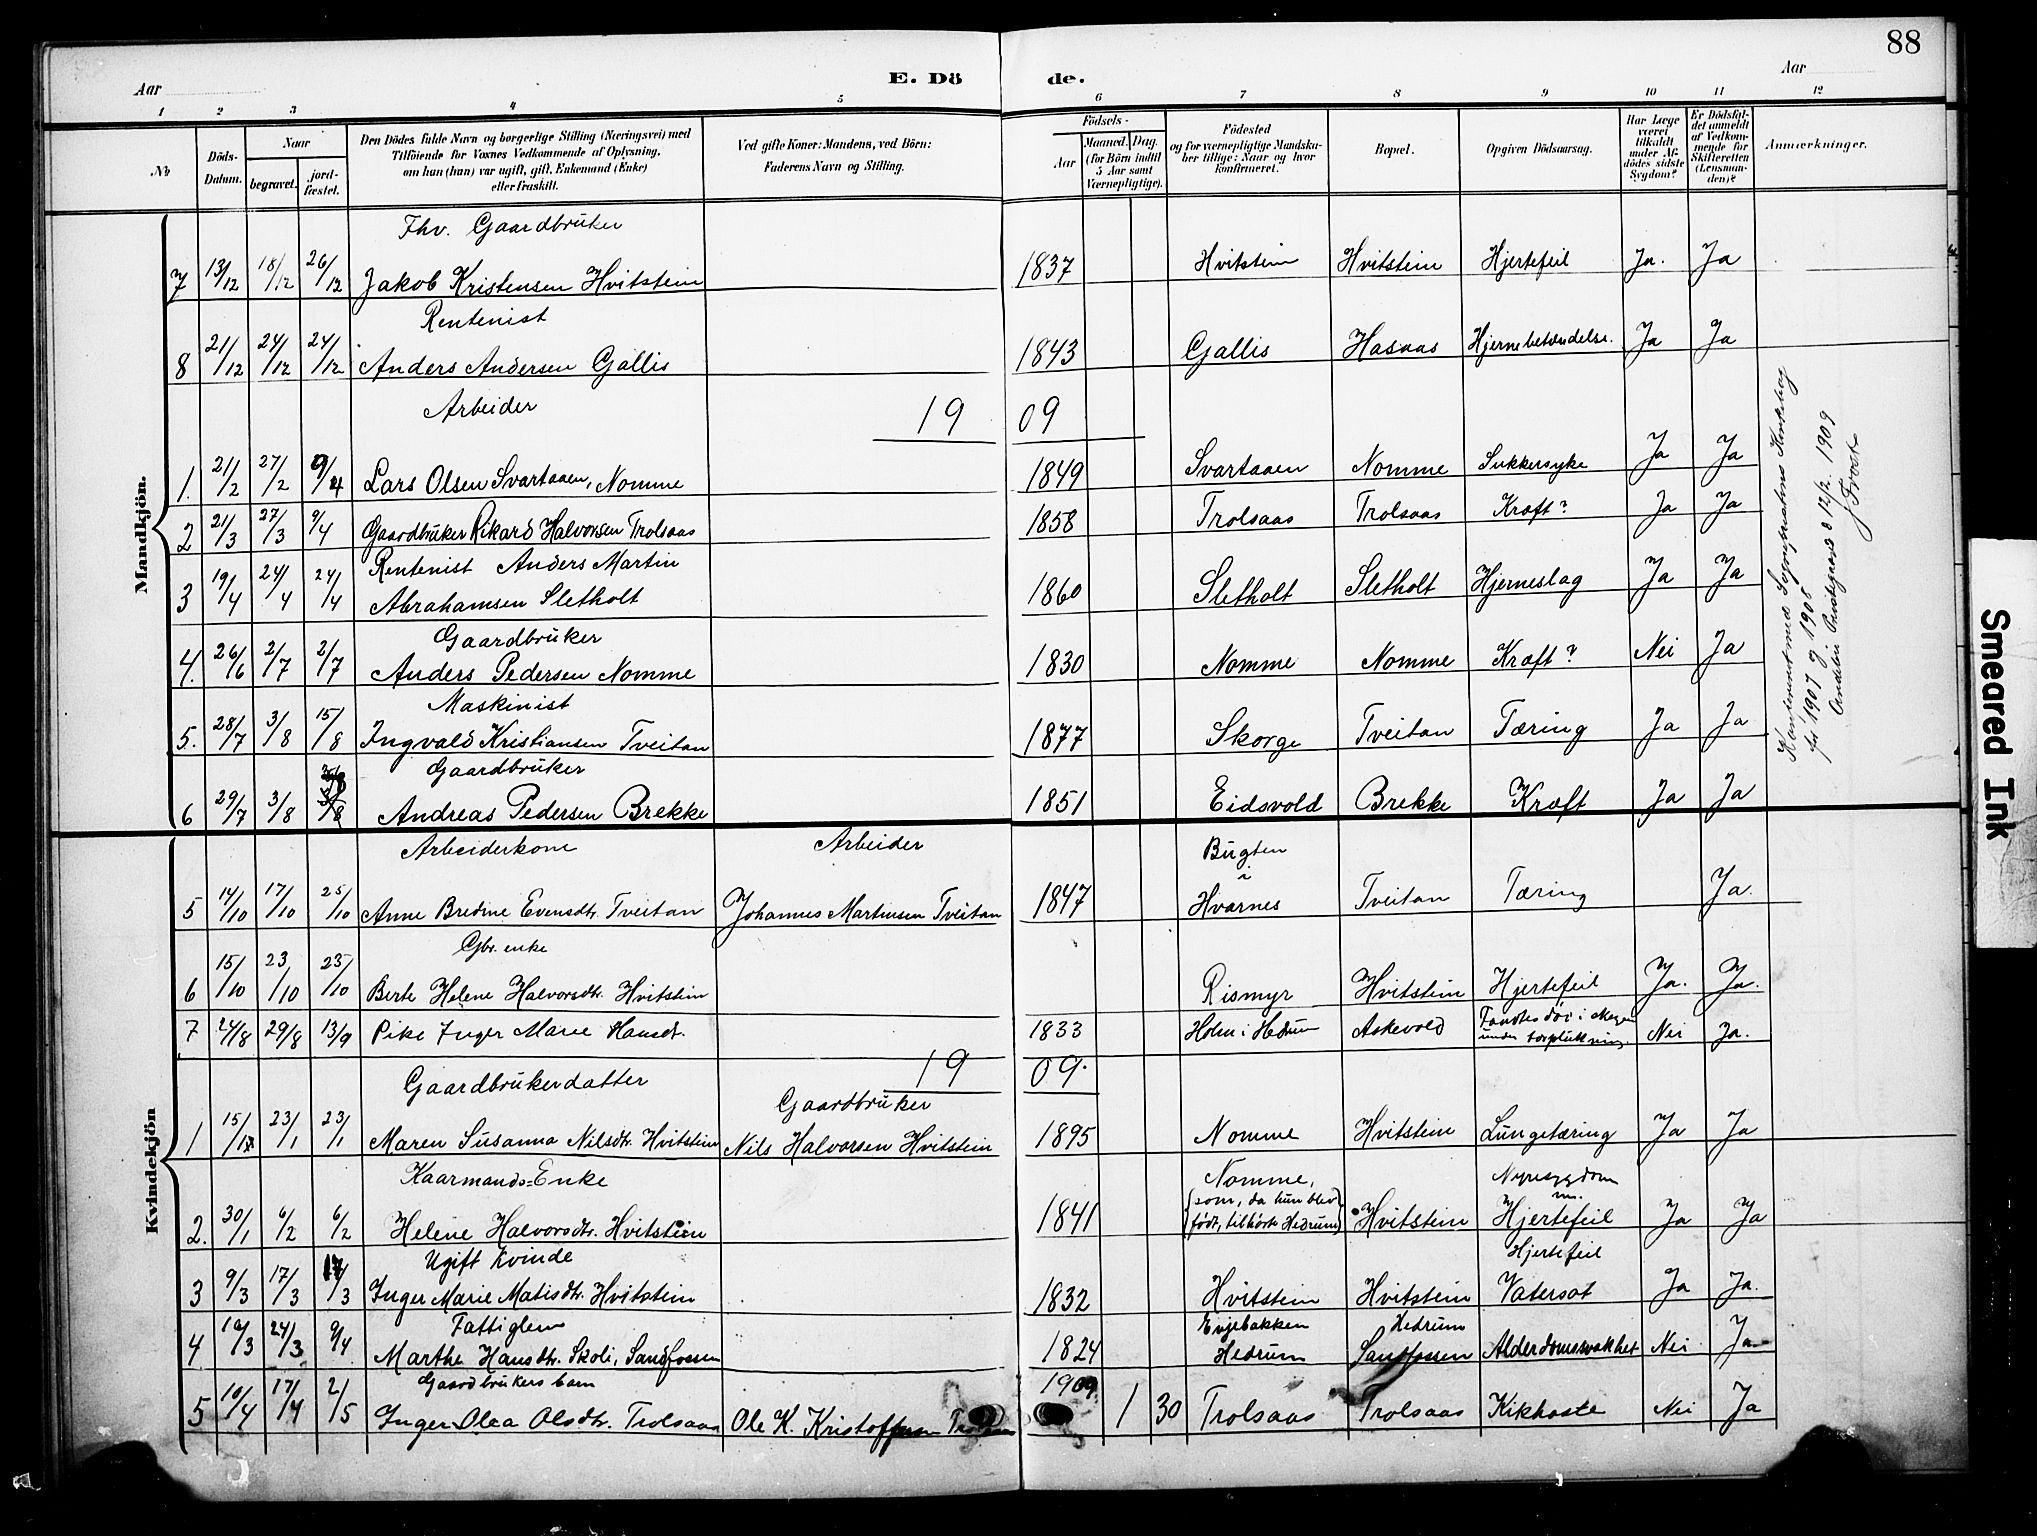 88
E. Dö de.
Aar
Aar
1 2 3 4 5 6 7 8 9 10 11 12
No
Döds-Datum.
Naar
begravet.
jord-fæstet.
Den Dödes fulde Navn og borgerlige Stilling (Næringsvei) med
Tilföiende for Voxnes Vedkommende af Oplysning,
om han (hun) var ugift, gift, Enkemand (Enke)
eller fraskilt.
Ved gifte Koner: Mandens, ved Börn:
Faderens Navn og Stilling.
Födsels-
Aar
Maaned. Dag.
(for Börn indtil
5 Aar samt
Værnepligtige).
Födested
og for værnepligtige Mandskaber tillige: Naar og hvor
konfirmeret.
Bopæl.
Opgiven Dödsaarsag.
Har Læge været tilkaldt under Afdödes sidste Sygdom?
Er Dödsfaldet anmeldt af Vedkommende for Skifteretten (Lensmanden)?
Anmærkninger.
Mandkjön.
Fhv. Gaardbrüker
7 13/12 18/12 26/12 Jakob Kristensen Hvitstein 1837 Hvitstein Hvitstein Hjertefeil Ja. Ja
Rentenist
8 21/12 24/12 24/12 Anders Andersen Gallis 1843 Gallis Hasaas Hjernebetændelse. Ja Ja
Arbeider
19 09
1. 21/2 27/2 9/4 Lars Olsen Svartaaen, Nomme 1849 Svartaaen Nomme Sukkersyke Ja Ja
2 21/3 27/3 9/4 Gaardbrüker Rikard Halvorsen Trolsaas 1858 Trolsaas Trolsaas Kræft? Ja Ja
Rentenist Anders Martin
3 19/4 24/4 24/4 Abrahamsen Sletholt 1860 Sletholt Sletholt Hjerneslag Ja Ja
Gaardbrüker
4. 26/6 2/7 2/7 Anders Pedersen Nomme 1830 Nomme Nomme Kræft? Nei Ja
Maskinist
5. 28/7 3/8 15/8 Ingvald Kristiansen Tveitan 1877 Skorge Tveitan Tæring Ja Ja
Gaardbrüker
6 29/7 3/8 Andreas Pedersen Brekke 1851 Eidsvold Brekke Kræft Ja Ja
Sogneprestens Kirkebog
for 1907 og 1908
Prestgaard 12/2 1909
Kvindekjön
Arbeiderkone Arbeider Bügten
5 14/10 17/10 25/10 Anne Bredine Evensdtr. Tveitan Johannes Martinsen Tveitan 1847 i Hvarnes Tveitan Tæring Ja.
Gbr. enke
6 15/10 23/10 25/10 Berte Helene Halvorsdtr. Hvitstein Rismyr Hvitstein Hjertefeil Ja. Ja.
7 24/8 29/8 13/9 Pike Inger Marie Hansdt. 1833 Holm i Hedrum Askevold Fandtes död i skogen under bærplukning. Nei Ja.
19 09.
Gaardbrükerdatter Gaardbrüker
1 15/1 23/1 23/1 Maren Susanna Nilsdtr. Hvitstein Nils Halvorsen Hvitstein 1895 Nomme Hvitstein Lungetæring Ja Ja
Kaarmands=Enke Nomme, Nyresygdom
2. 30/1 6/2 6/2 Helene Halvorsdtr. Hvitstein 1841 (som, da hun blev födt, tilhörte Hedrum) Hvitstein m. Hjertefeil Ja Ja
Ugift kvinde Hjertefeil
3 9/3 17/3 17/3 Inger Marie Matisdtr. Hvitstein 1832 Hvitstein Hvitstein Vatersot Ja Ja.
Fattiglem Evjebakken Hedrum
4. 24/3 9/4 Marthe Hansdtr. Skoli, Sandfossen 1824 Hedrum Sandfossen Alderdomssvakhet Nei Ja
Gaardbrükers barn 1909
5 10/4 17/4 2/5 Inger Olea Olsdtr. Trolsaas Ole K. Kristoffersen Trolsaas 1 30 Trolsaas Trolsaas Kikhoste Nei Ja
Smeared Ink